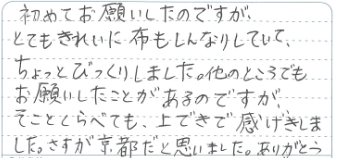 初めてお願いしたのですが、
とてもきれいに布もしんなりしていて、
ちょっとびっくりしました。他のところでも
お願いしたことがあるのですが、
そことくらべても、上できで感げきしま
した。さすが京都だと思いました。ありがとう